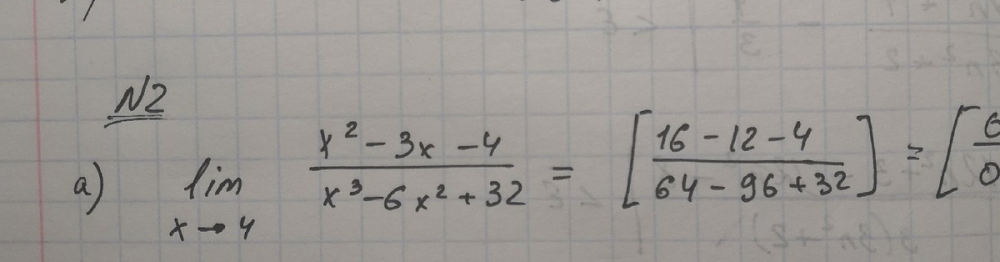 N2
a) lim x→4 (x² - 3x - 4)/(x³ - 6x² + 32) = [(16 - 12 - 4)/(64 - 96 + 32)] = [